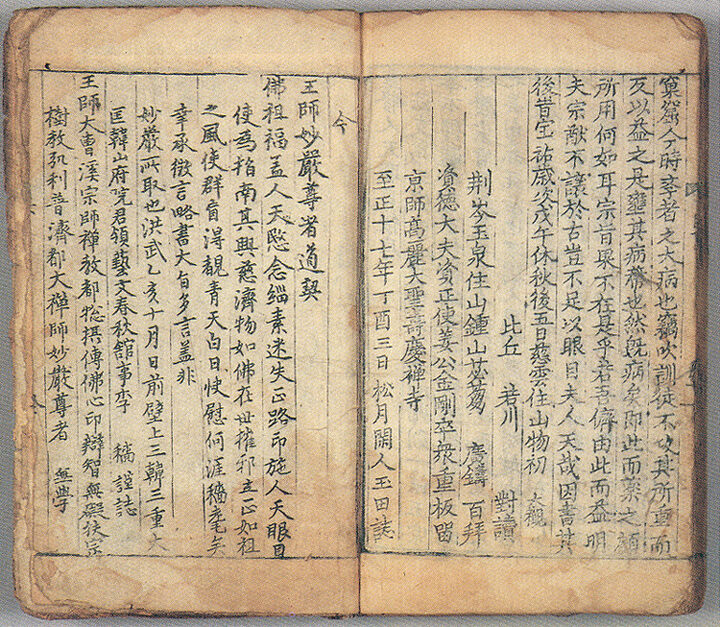 窠窟今時卒者之大病也竊吹訓徒不攻其所重而
反以益之是壅其病幣也然旣病矣即此而藥之顧
所用何如耳宗旨果不在是乎若吾儕由此而益明
夫宗猷不讓於古豈不足以眼目夫人天哉因書其
後昔宝祐歲次戊午休秋後五日慈雲住山物初 大觀
比丘 若川 對讀
荆岑玉泉住山鍾山苾蒭 廣鑄 百拜
資德大夫資正使姜公金剛空衆重板留
京師髙麗大聖壽慶禪寺
至正十七年丁酉三日 松月閑人玉田誌
今
王師妙嚴尊者道契
佛祖福盖人天愍念緇素迷失正路印施人天眼目
使爲指南其興慈濟物如佛在世摧邪立正如祖
之風使群盲淂覩青天白日快慰何涯穡耄矣
幸承徴言略書大旨多言盖非
妙嚴所取也洪武乙亥十月日前壁上三韓三重大
匡韓山府院君領藝文春秋舘事李 穡 謹誌
王師大曹溪宗師禪敎都揔攝傳佛心印辯智無礙扶宗
樹敎弘利普濟都大禪師妙嚴尊者 無學